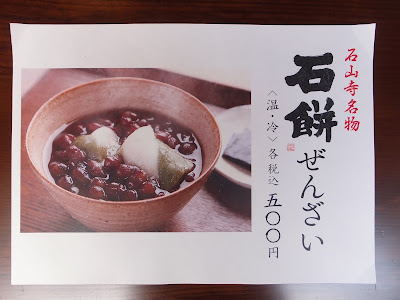 石山寺名物
石餅ぜんざい
〈温・冷〉各税込五〇〇円